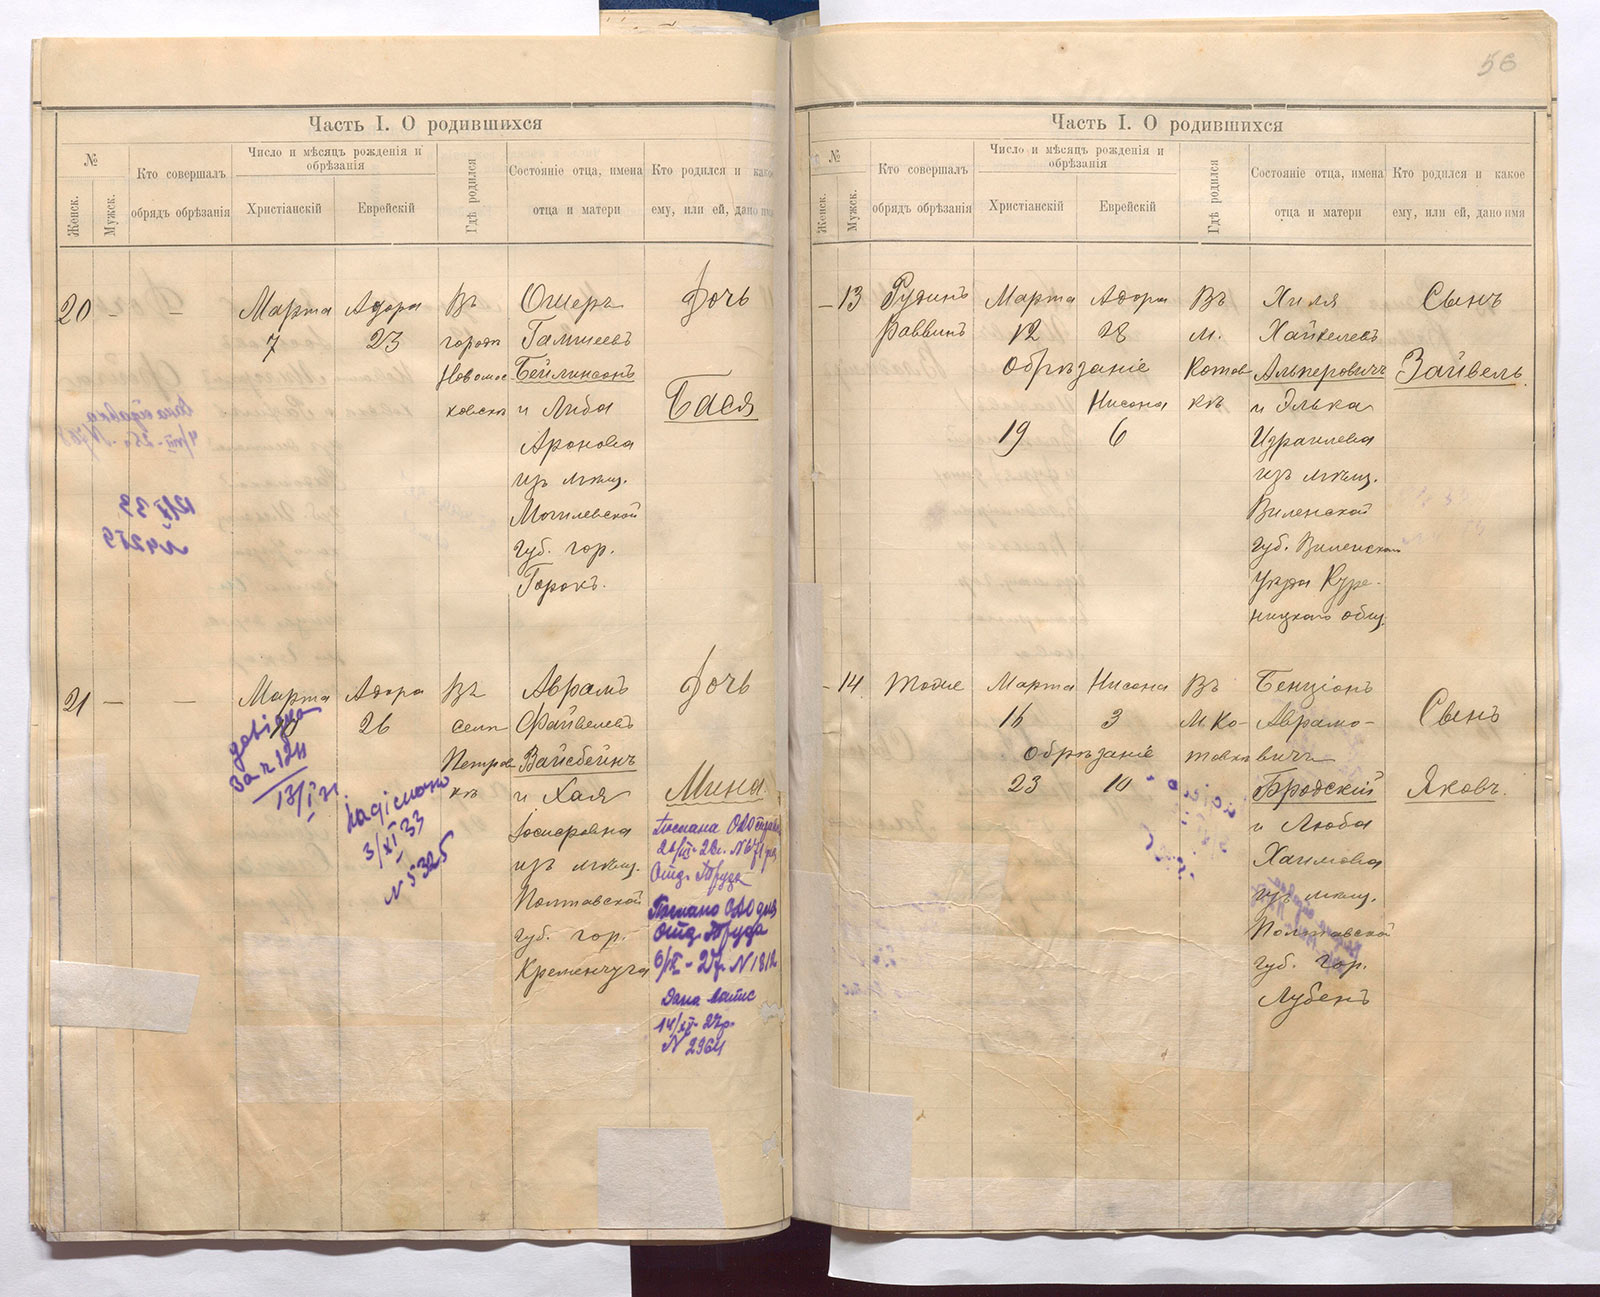 56
Часть I. О родившихся
№
Женск.
Мужск.
Кто совершалъ
обрядъ обрѣзанія
Число и мѣсяцъ рожденія и
обрѣзанія
Христіанскій
Еврейскій
Гдѣ родился
Состояніе отца, имена
отца и матери
Кто родился и какое
ему, или ей, дано имя
20 — —
Марта
7
Адара
23
Въ
городѣ
Новомос
ковскѣ
Ошеръ
Гамшеевъ
Бейлинсонъ
и Либа
Аронова
изъ мѣщ.
Могилевской
губ. гор.
Горокъ.
Дочь
Бася
21 — —
Марта
10
Адара
26
Въ
селѣ
Петров
кѣ
Аврамъ
Файвелевъ
Вайсбейнъ
и Хая
Іосифовна
изъ мѣщ.
Полтавской
губ. гор.
Кременчуга
Дочь
Мина
за n 124
13/I
3/XI 33
N 5325
Отд. Труда
Отд. Труда
N 1812
Дана
N 2964
Часть I. О родившихся
№
Женск.
Мужск.
Кто совершалъ
обрядъ обрѣзанія
Число и мѣсяцъ рожденія и
обрѣзанія
Христіанскій
Еврейскій
Гдѣ родился
Состояніе отца, имена
отца и матери
Кто родился и какое
ему, или ей, дано имя
— 13
Рудинъ
Раввинъ
Марта
12
Адара
28
Обрѣзаніе
19
Нисона
6
Въ
м.
Котов
кѣ
Хиля
Хайкелевъ
Альперовичъ
и Элька
Израилева
изъ мѣщ.
Виленской
губ. Виленскаго
уѣзда Куре-
ницкаго общ.
Сынъ
Зайвель
— 14
Тоже
Марта
16
Нисона
3
Обрѣзаніе
23
10
Въ
м Ко-
товкѣ
Бенціонъ
Аврамо-
вичъ
Бродскій
и Люба
Хаимова
изъ мѣщ.
Полтавской
губ. гор.
Лубенъ
Сынъ
Яковъ.